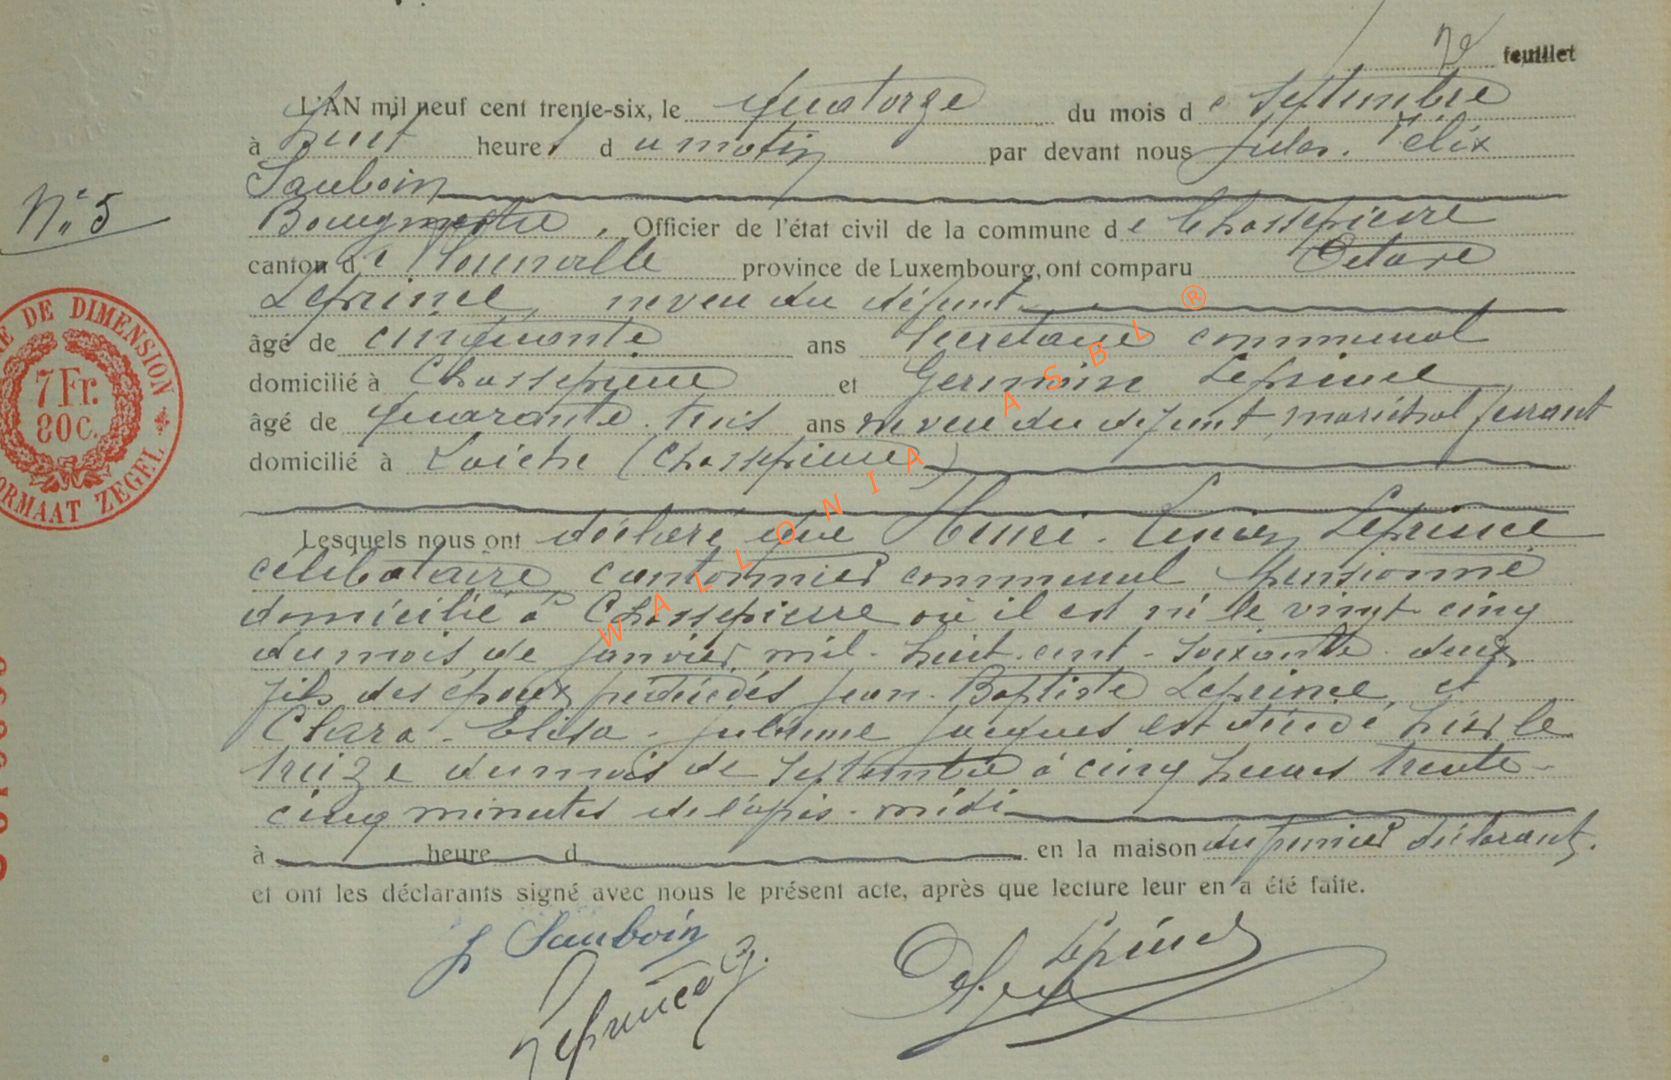 2e feuillet
L'AN mil neuf cent trente-six, le quatorze du mois de septembre
à huit heures du matin par devant nous Jules. Félix
Sauboin
N° 5
Bourgmestre, Officier de l'état civil de la commune de Chassepierre
canton de Florenville province de Luxembourg, ont comparu Octave
Leprince, neveu du défunt
âgé de cinquante ans secrétaire communal
domicilié à Chassepierre et Germain Leprince,
âgé de quarante. trois ans neveu du défunt, maréchal ferrant
domicilié à Laiche (Chassepierre)
Lesquels nous ont déclaré que Henri. Lucien Leprince
célibataire, cantonnier communal pensionné
domicilié à Chassepierre où il est né le vingt cinq
du mois de janvier mil. huit. cent. soixante. deux,
fils des époux prédécédés Jean. Baptiste Leprince, et
Clara. Elisa. Julienne Jacques est décédé hier le
treize du mois de septembre à cinq heures trente-
cinq minutes de l'après-midi
à heure d en la maison du premier déclarant.
et ont les déclarants signé avec nous le présent acte, après que lecture leur en a été faite.
J Sauboin
Leprince G.
Oct. Leprince
DE DIMENSION
7 Fr.
80 c.
FORMAAT ZEGEL
WALLONIA ASBL ®